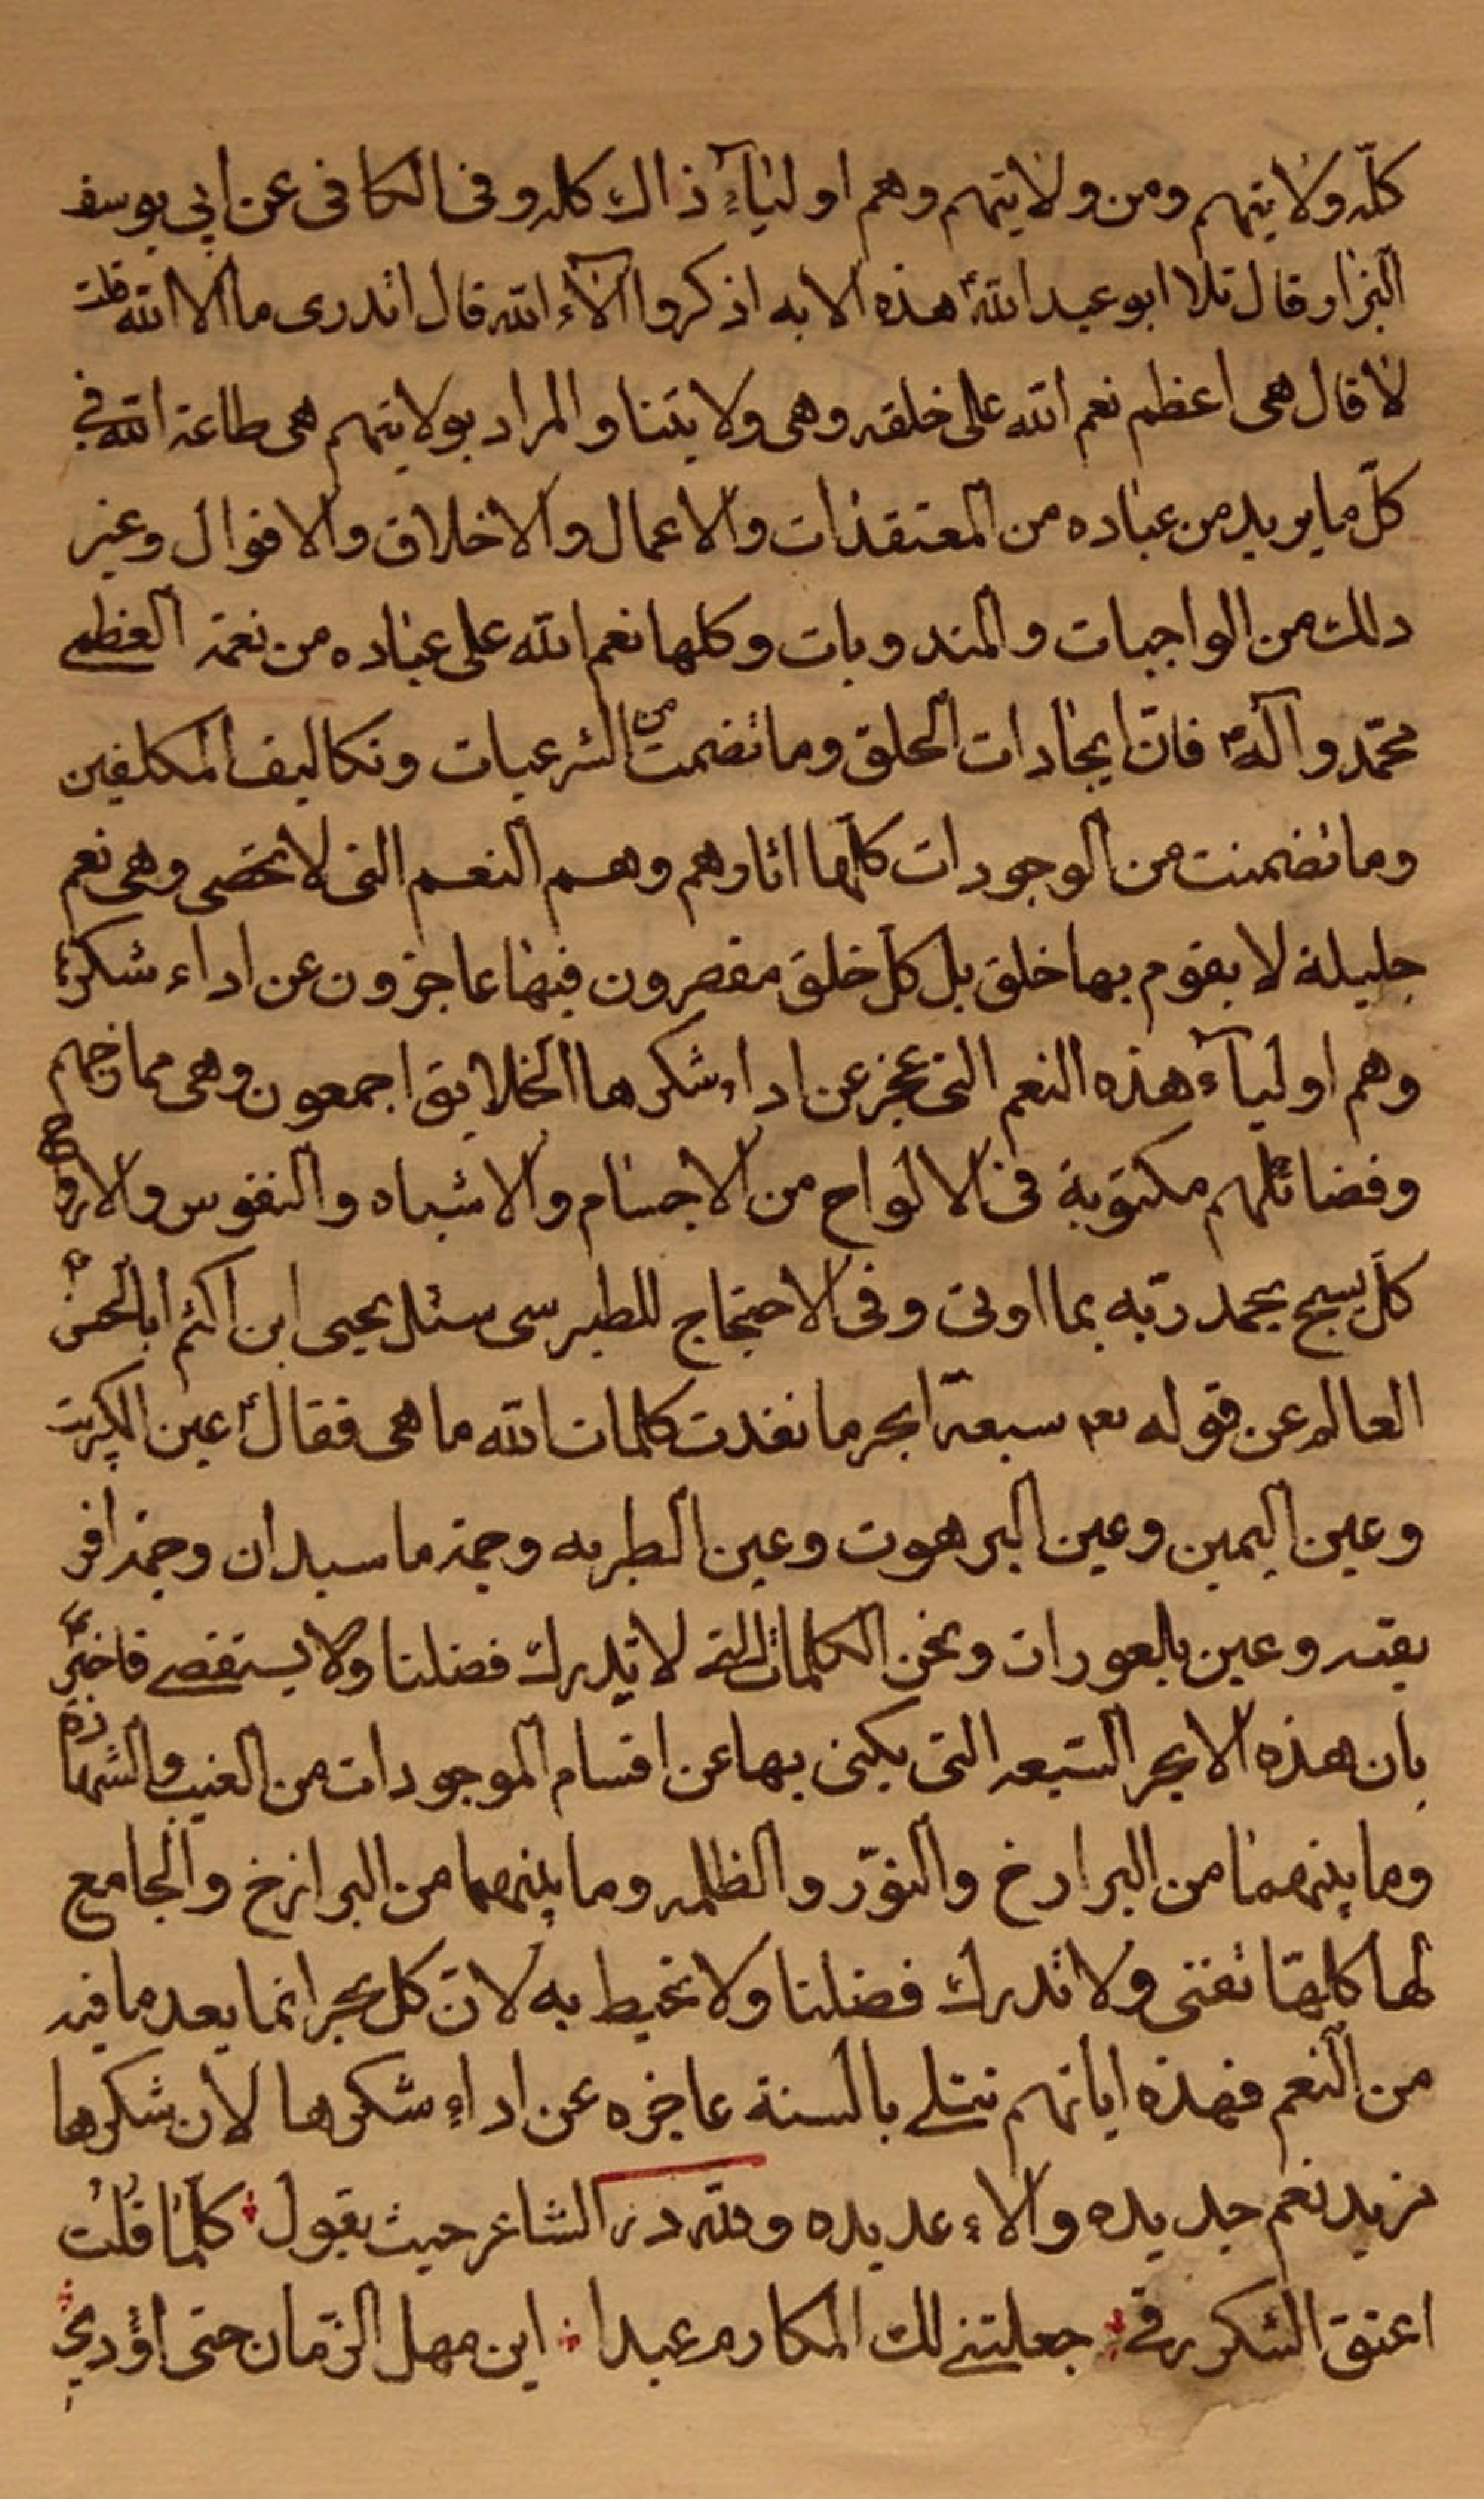 كلّه ولايتهم ومن ولايتهم وهم اولياۤء ذالك كله وفى الكافى عن ابي يوسف
البزار قال تلا ابو عبد اللهؑ هذه الايه اذكروا آلاۤء الله قال اتدرى ما الا الله قلت
لا قال هى اعظم نعم الله على خلقه وهى ولايتنا والمراد بولايتهم هى طاعة الله في
كلّ ما يريد من عباده من المعتقدات والاعمال والاخلاق والاقوال وغير
دلك من الواجبات والمندوبات وكلها نعم الله على عباده من نعمة العظمى
محمّد وآلهؑ فانّ ايجادات الخلق وما تضمنت من الشرعيات وتكاليف المكلفين
وما تضمنت من الوجودات كلّها اثارهم وهم النعم التى لا تحصى وهى نعم
جليلة لا يقوم بها خلق بل كلّ خلق مقصرون فيها عاجزون عن اداء شكره
وهم اولياۤء هذه النعم التى عجز عن اداء شكرها الخلايق اجمعون وهى ممادحهم
وفضائلهم مكتوبة فى الالواح من الاجسام والاشباه والنفوس والارواح
كلّ يسبح بحمد ربّه بما اوتى وفى الاحتجاج للطبرسى سئل يحيى ابن اكثم ابا الحسنؑ
العالم عن قوله تعم سبعة ابحر ما نفدت كلمات الله ما هى فقالؑ عين الكبريت
وعين اليمين وعين البرهوت وعين الطبريه وحمة ماسبدان وحمة افر
يقيه وعين بلعوران ونحن الكلمات التى لا يدرك فضلنا ولا يستقصى فاخبرؑ
بان هذه الابحر السبعه التى يكنى بها عن اقسام الموجودات من الغيب والشهادة
وما بينهما من البرارخ والنوّر والظلمه وما بينهما من البرازخ والجامع
لها كلهّا تفنى ولا تدرك فضلنا ولا تحيط به لانّ كل بحر انما يعد ما فيه
من النعم فهذه اياتهم تتلى بالسنة عاجزه عن اداء شكرها لأن شكرها
نريد نعم جديده والاء عديده ولله درّ الشاعر حيث يقول كلّما قلت
اعتق الشكر رقى جعلتنى لك المكارم عبدا اين مهل الزّمان حتى اؤدي